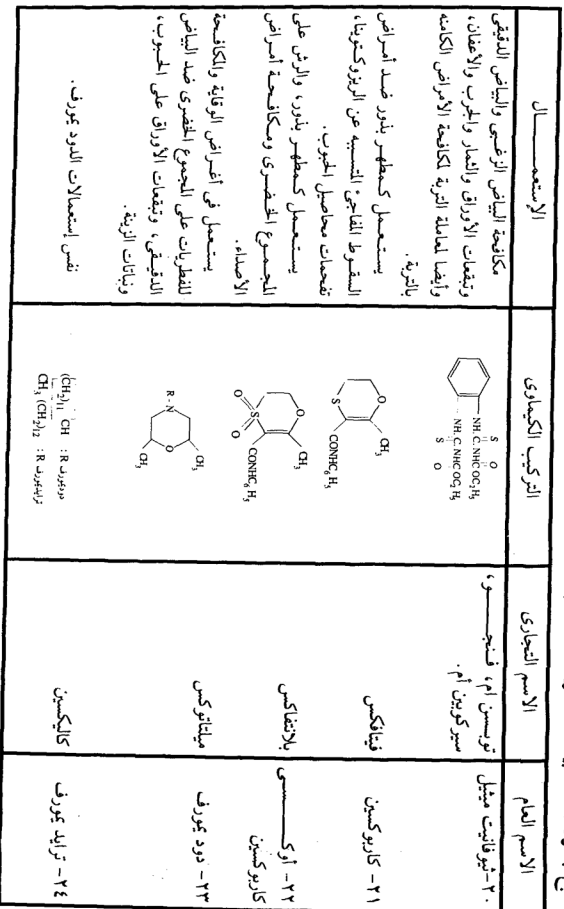 الاسم العام
الاسم التجارى
التركيب الكيماوى
الإستعمـــــال
٢٠- ثيوفانيت ميثيل
توبسن ام، فــنجـــــو،
سيركوبين أم.
S O
NH. C. NHC OC₂H₅
NH. C. NHC OC₂H₅
S O
مكافحة البياض الزغبى والبياض الدقيقى
وتبقعات الأوراق والثمار والجرب والأعفان،
وأيضا لمعاملة التربة لمكافحة الأمراض الكامنه
بالتربة.
٢١- كاربوكسين
فيتافكس
O CH₃
S CONHC₆ H₅
يستعمل كـمطهـر بذور ضـد أمـراض
السقـوط المفاجئ المتسببه عن الريزوكـتونيا،
تفحمات محاصيل الحبوب.
٢٢- أوكـــــسى
كاربوكسين
بلانتفاكس
O CH₃
S CONHC₆ H₅
O O
يستـعمل كـمطهـر بذور، والرش على
المجمـوع الخـضـرى ومكافـحـة أمـراض
الأصداء.
٢٣- دود يمورف
ميلتاتوكس
CH₃
R - N O
CH₃
يستعمل فى أغـراض الوقاية والمكافـحة
للفطريات على المجموع الخضرى ضد البياض
الدقيـقى، وتبقعات الأوراق على الحبوب،
ونباتات الزينة.
٢٤- ترايد يمورف
كاليكسين
(CH₂)₁₁ CH :R دوديمورف
CH₃ (CH₂)₁₂ :R ترايديمورف
نفس إستعمالات الدود يمورف.